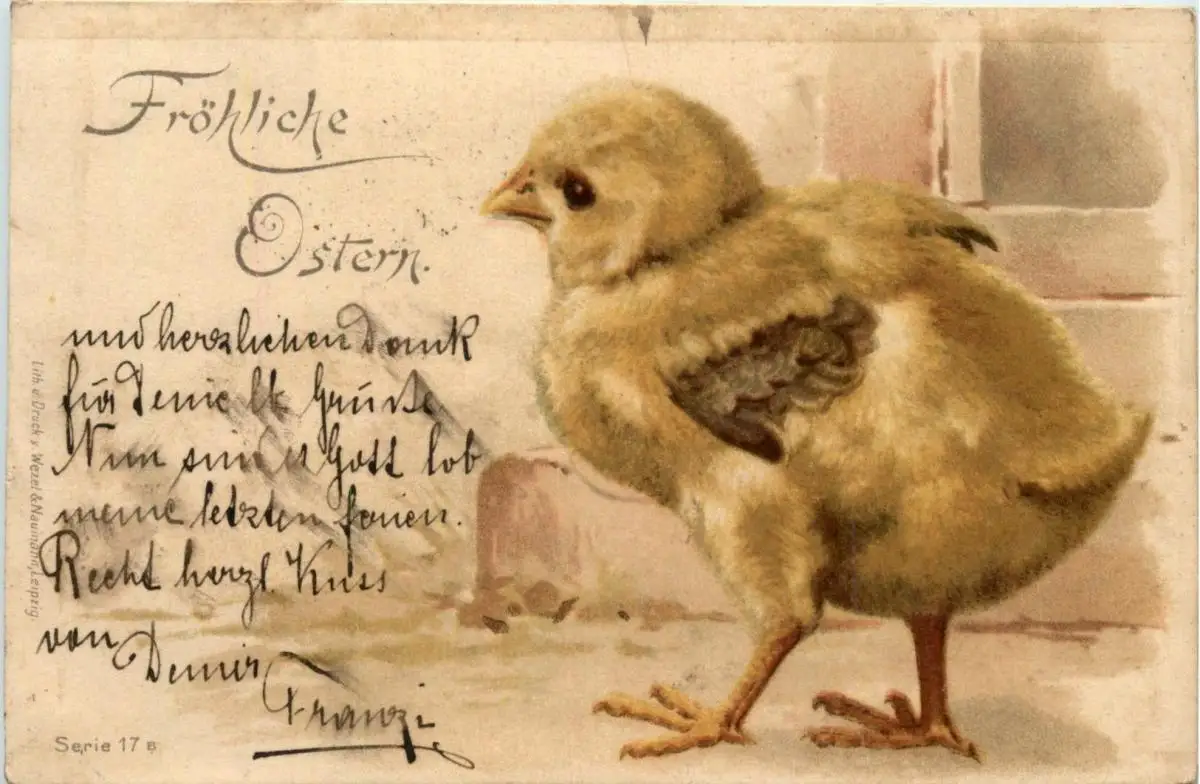 Fröhliche
Ostern.
und herzlichen Dank
für Deine lb. Grüße
Nun sind es Gott lob
meine letzten ferien.
Recht herzl. Kuss
von
Deiner
Franzi
Lith. u. Druck v. Wezel & Naumann, Leipzig.
Serie 17 B